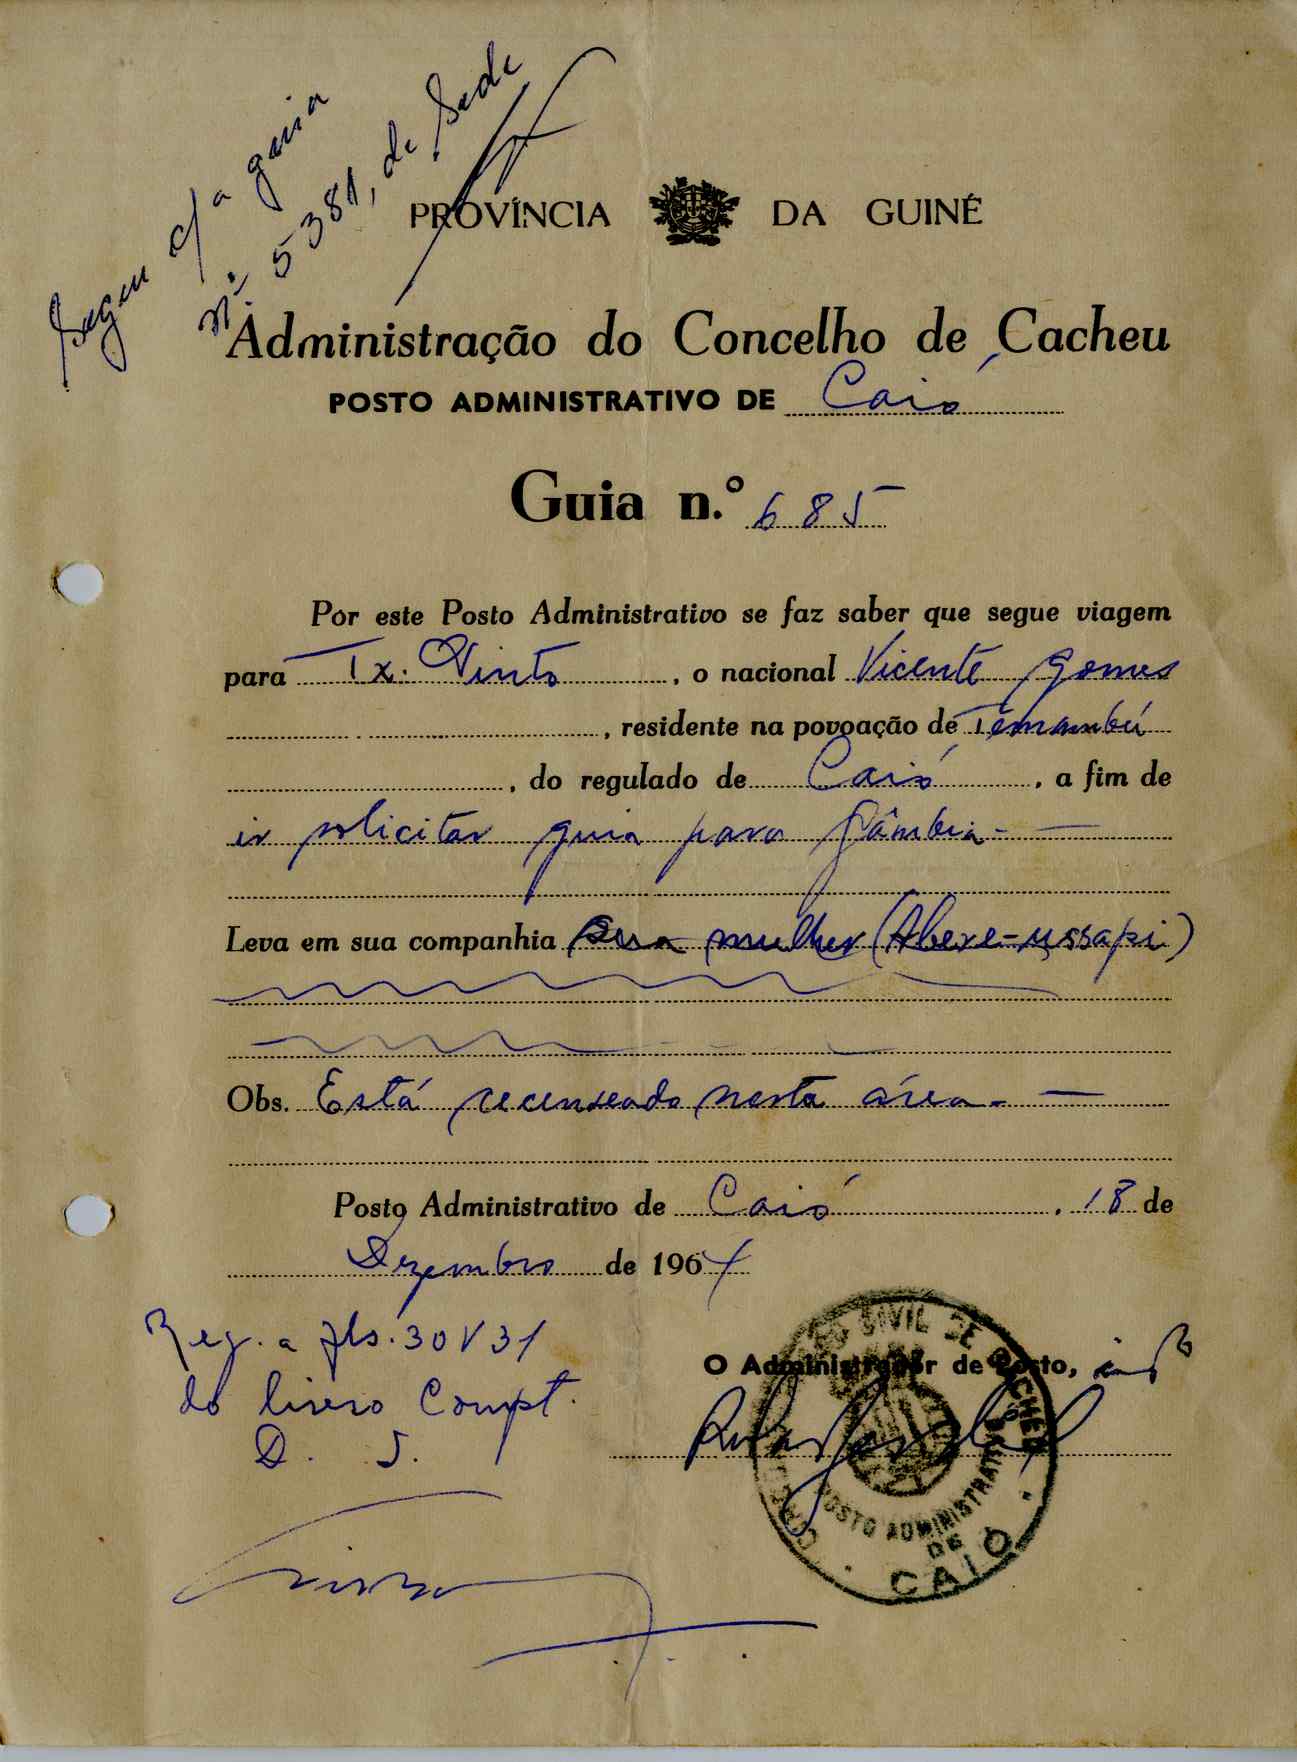 Segue c/a guia
nº 5381, da Sede
PROVÍNCIA DA GUINÉ
Administração do Concelho de Cacheu
POSTO ADMINISTRATIVO DE Caió
Guia n.º 685
Por este Posto Administrativo se faz saber que segue viagem
para Tx. Pinto, o nacional Vicente Gomes
, residente na povoação de Temambú
, do regulado de Caió, a fim de
ir solicitar guia para Gâmbia.—
Leva em sua companhia sua mulher (Abere-ussapi)
Obs. Está recenseado nesta área.—
Posto Administrativo de Caió, 18 de
Dezembro de 1964
Reg. a fls. 30V31
do livro Compt.
D. S.
O Administrador de Posto,
CIVIL DE CACHEU
POSTO ADMINISTRATIVO
DE
CAIÓ